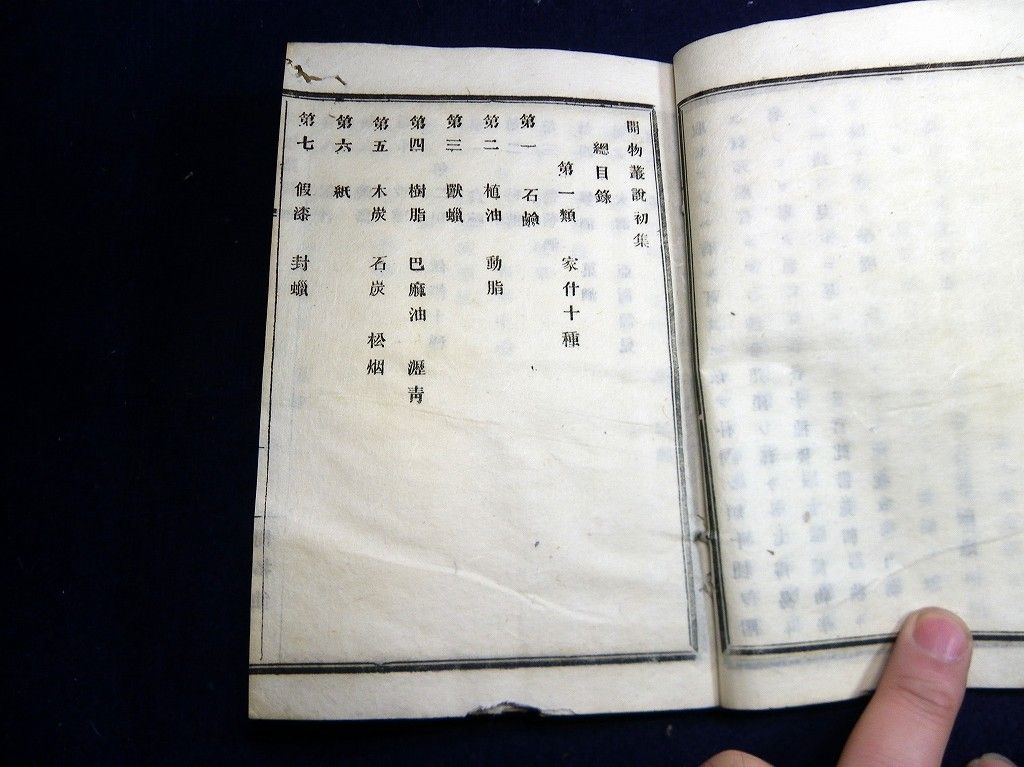 開物叢說初集
總目錄
第一類 家什十種
第一 石鹼
第二 植油 動脂
第三 獸蠟
第四 樹脂 巴麻油 瀝青
第五 木炭 石炭 松烟
第六 紙
第七 假漆 封蠟